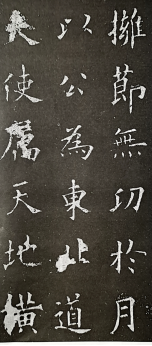 擁節無功於月
以公為東北道
大使厲天地橫